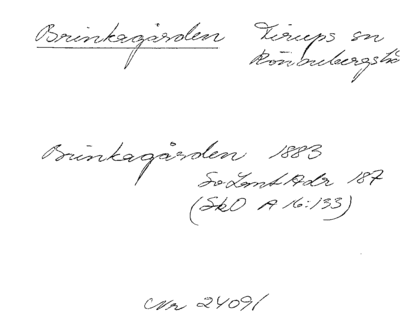 Brinkagården Tirups sn
Rönnebergshd
Brinkagården 1883
SvLantAdr 187
(SkO A 16:133)
Nr 24091